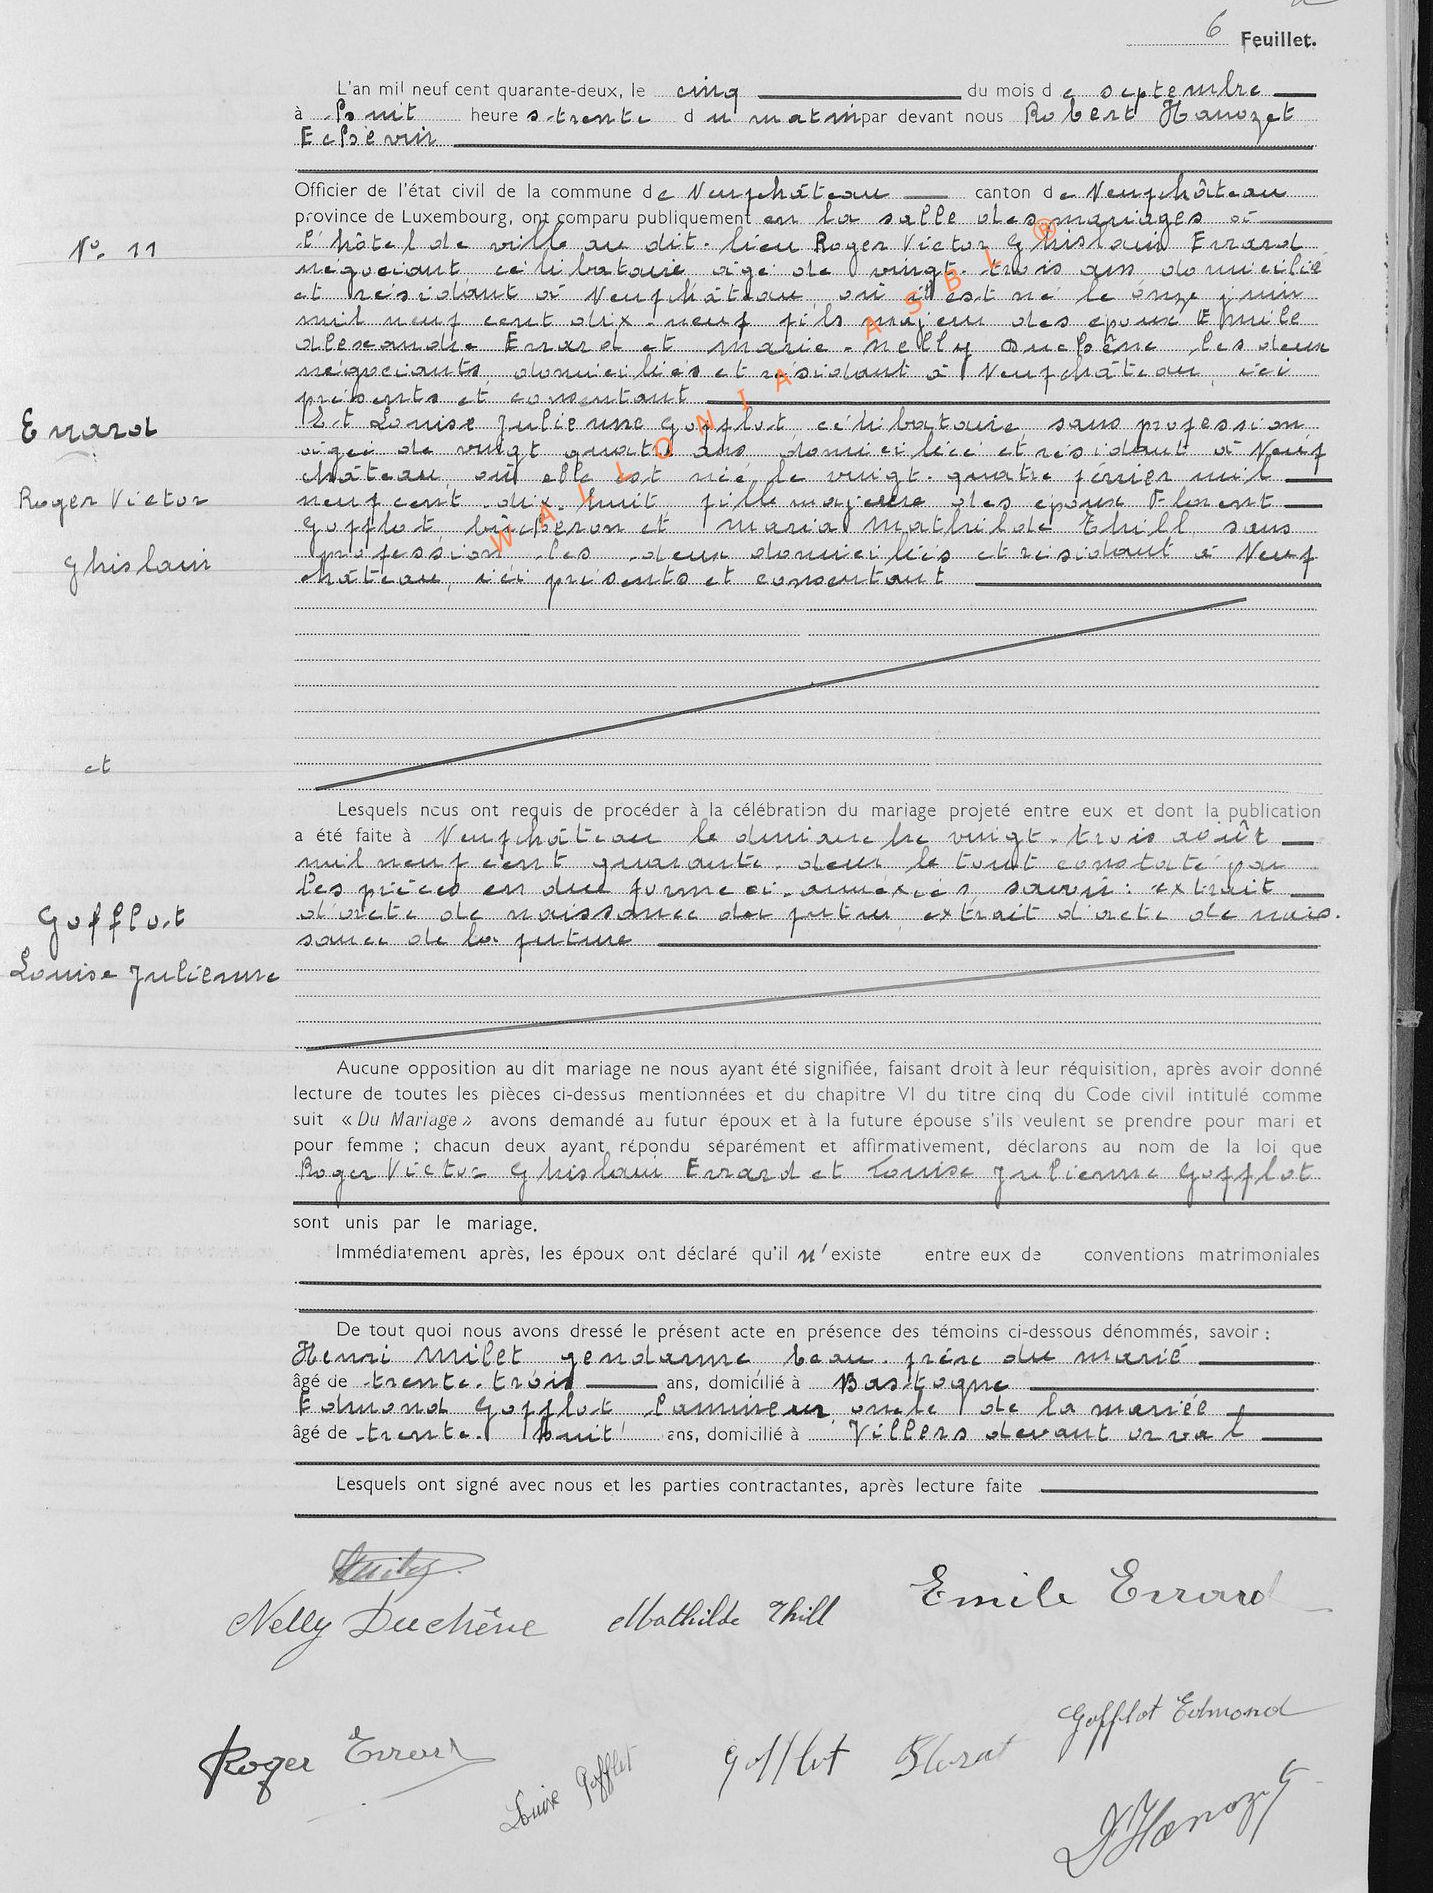 6 Feuillet.
L'an mil neuf cent quarante-deux, le cinq du mois de septembre
à huit heures trente du matin par devant nous Robert Hanozet
Echevin
Officier de l'état civil de la commune de Neufchâteau canton de Neufchâteau
province de Luxembourg, ont comparu publiquement en la salle des mariages à
N° 11
l'hôtel de ville au dit-lieu Roger Victor Ghislain Errard
négociant célibataire âgé de vingt-trois ans domicilié
et résidant à Neufchâteau, où il est né le onze juin
mil neuf cent dix-neuf fils majeur des époux Emile
Alexandre Errard et Marie-Nelly Duchêne, les deux
négociants, domiciliés et résidant à Neufchâteau, ici
présents et consentant
Errard
Et Louise Julienne Gofflot, célibataire sans profession
âgée de vingt quatre ans domiciliée et résidant à Neuf
château, où elle est née le vingt-quatre février mil
Roger Victor
neuf cent dix-huit fille majeure des époux Florent
Gofflot, bûcheron et Maria Mathilde Thill sans
Ghislain
profession les deux domiciliés et résidant à Neuf
château, ici présents et consentant
et
Lesquels nous ont requis de procéder à la célébration du mariage projeté entre eux et dont la publication
a été faite à Neufchâteau le dimanche vingt-trois août
mil neuf cent quarante-deux le tout constaté par
les pièces en due forme ci-annexées, savoir: extrait
Gofflot
d'acte de naissance du futur, extrait d'acte de nais-
sance de la future
Louise Julienne
Aucune opposition au dit mariage ne nous ayant été signifiée, faisant droit à leur réquisition, après avoir donné
lecture de toutes les pièces ci-dessus mentionnées et du chapitre VI du titre cinq du Code civil intitulé comme
suit « Du Mariage » avons demandé au futur époux et à la future épouse s'ils veulent se prendre pour mari et
pour femme ; chacun deux ayant répondu séparément et affirmativement, déclarons au nom de la loi que
Roger Victor Ghislain Errard et Louise Julienne Gofflot
sont unis par le mariage.
Immédiatement après, les époux ont déclaré qu'il n'existe entre eux de conventions matrimoniales
De tout quoi nous avons dressé le présent acte en présence des témoins ci-dessous dénommés, savoir :
Henri Milet gendarme, beau-frère du marié
âgé de trente-trois ans, domicilié à Bastogne
Edmond Gofflot lamineur, oncle de la mariée
âgé de trente-huit ans, domicilié à Villers devant orval
Lesquels ont signé avec nous et les parties contractantes, après lecture faite
Nelly Duchêne Mathilde Thill Emile Errard
Roger Errard Louise Gofflot Gofflot Florent Gofflot Edmond
Hanozet
WALLONIA ASBL ®